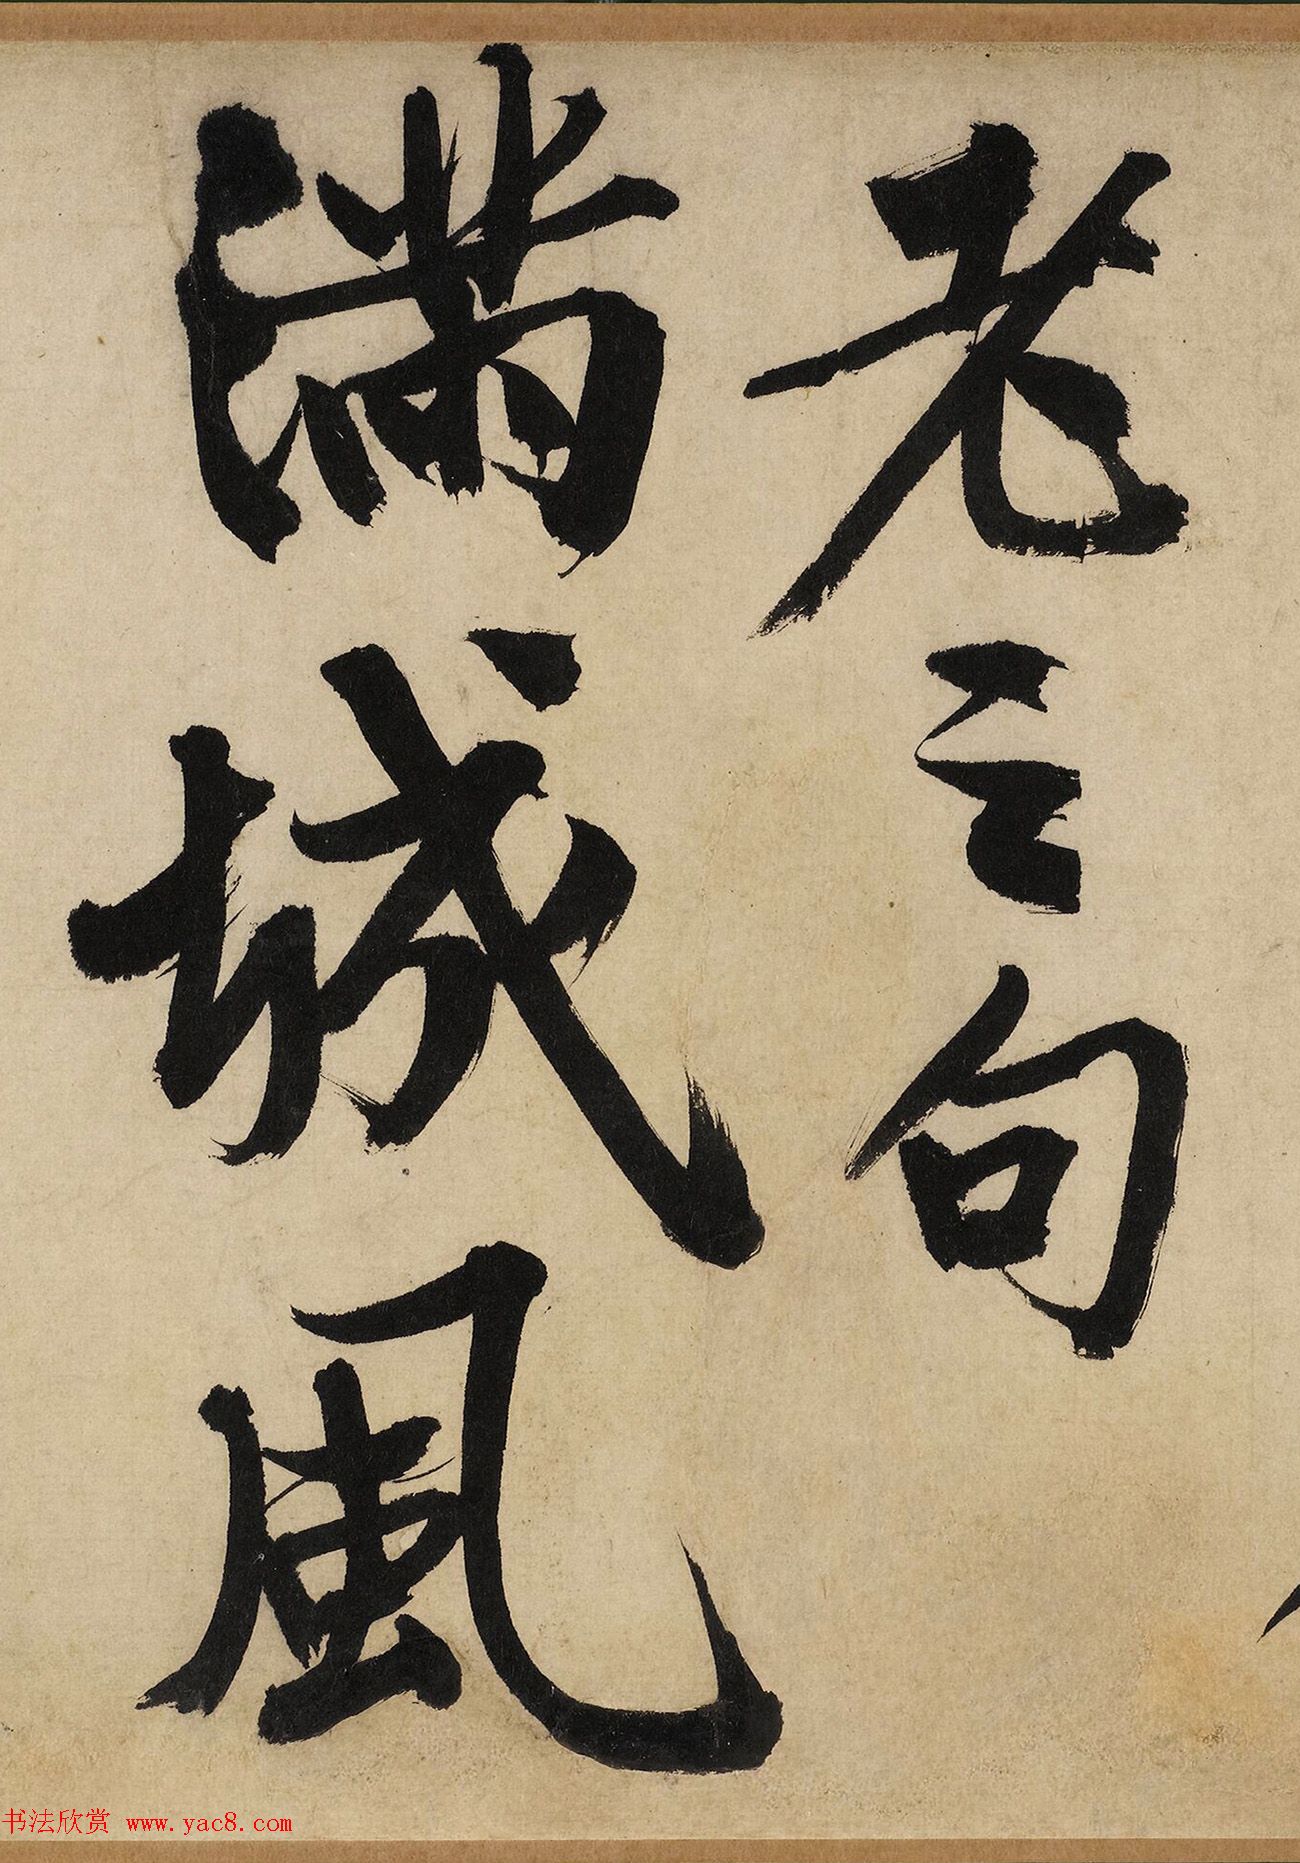 老之句
滿城風
书法欣赏 www.yac8.com